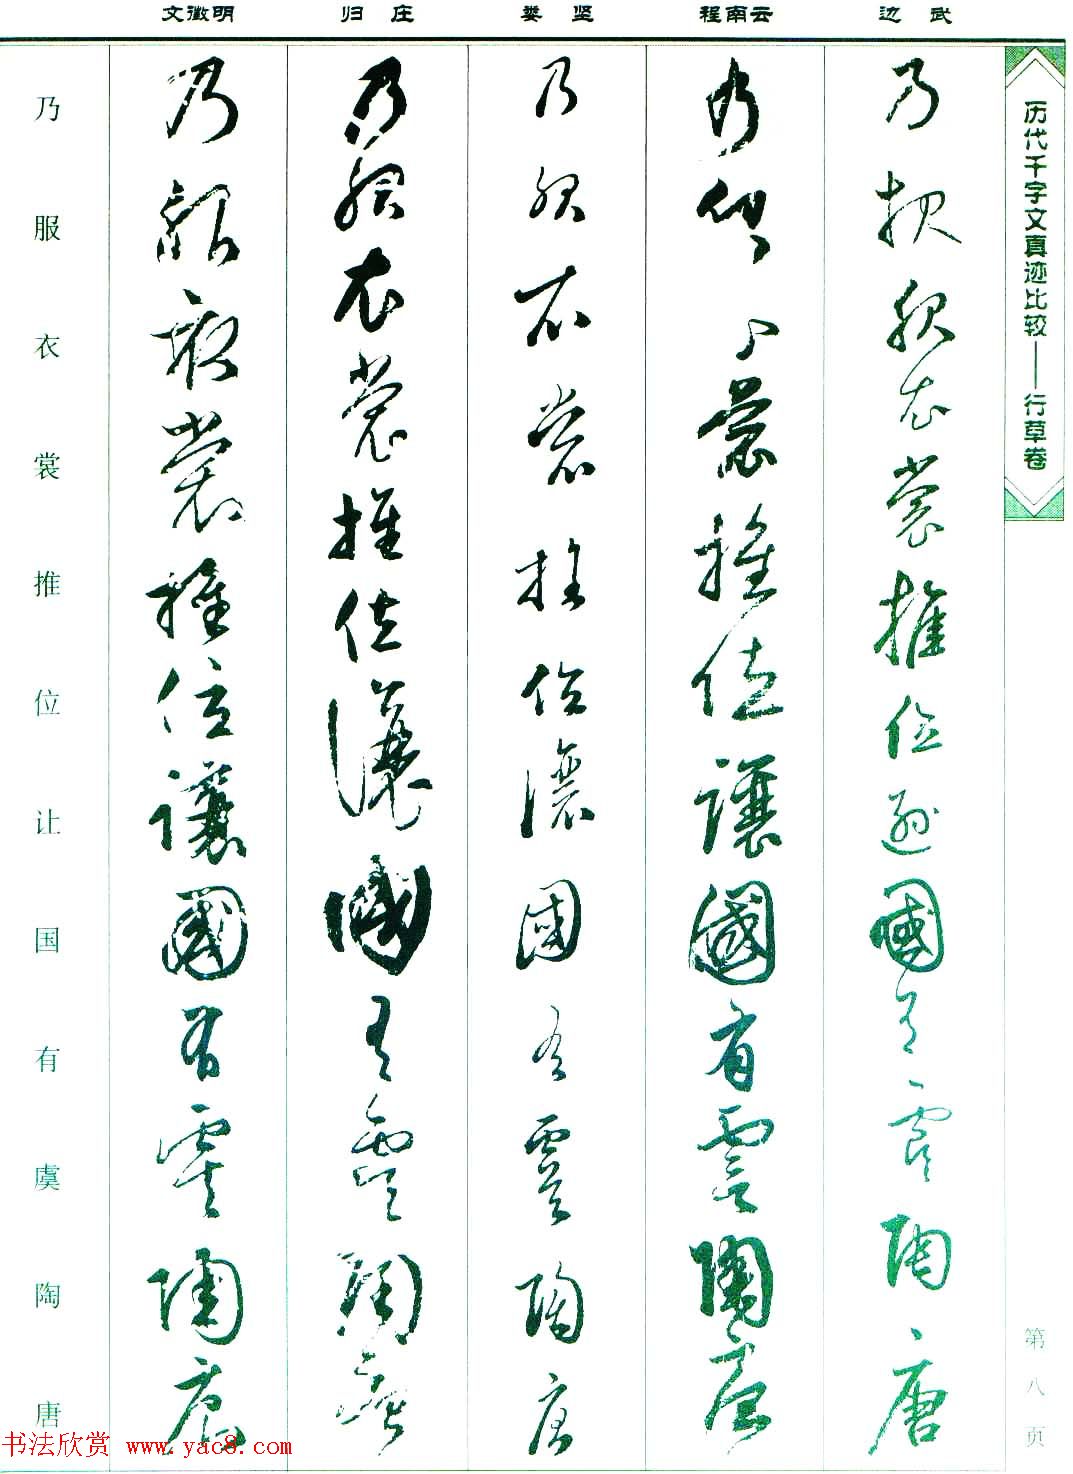 文徵明 归庄 娄坚 程南云 边武
历代千字文真迹比较——行草卷
乃服衣裳推位遜國有虞陶唐
乃服衣裳推位讓國有虞陶唐
乃服衣裳推位讓國有虞陶唐
乃服衣裳推位讓國有虞陶唐
乃服衣裳推位讓國有虞陶唐
乃服衣裳推位让国有虞陶唐
第八页
书法欣赏 www.yac8.com